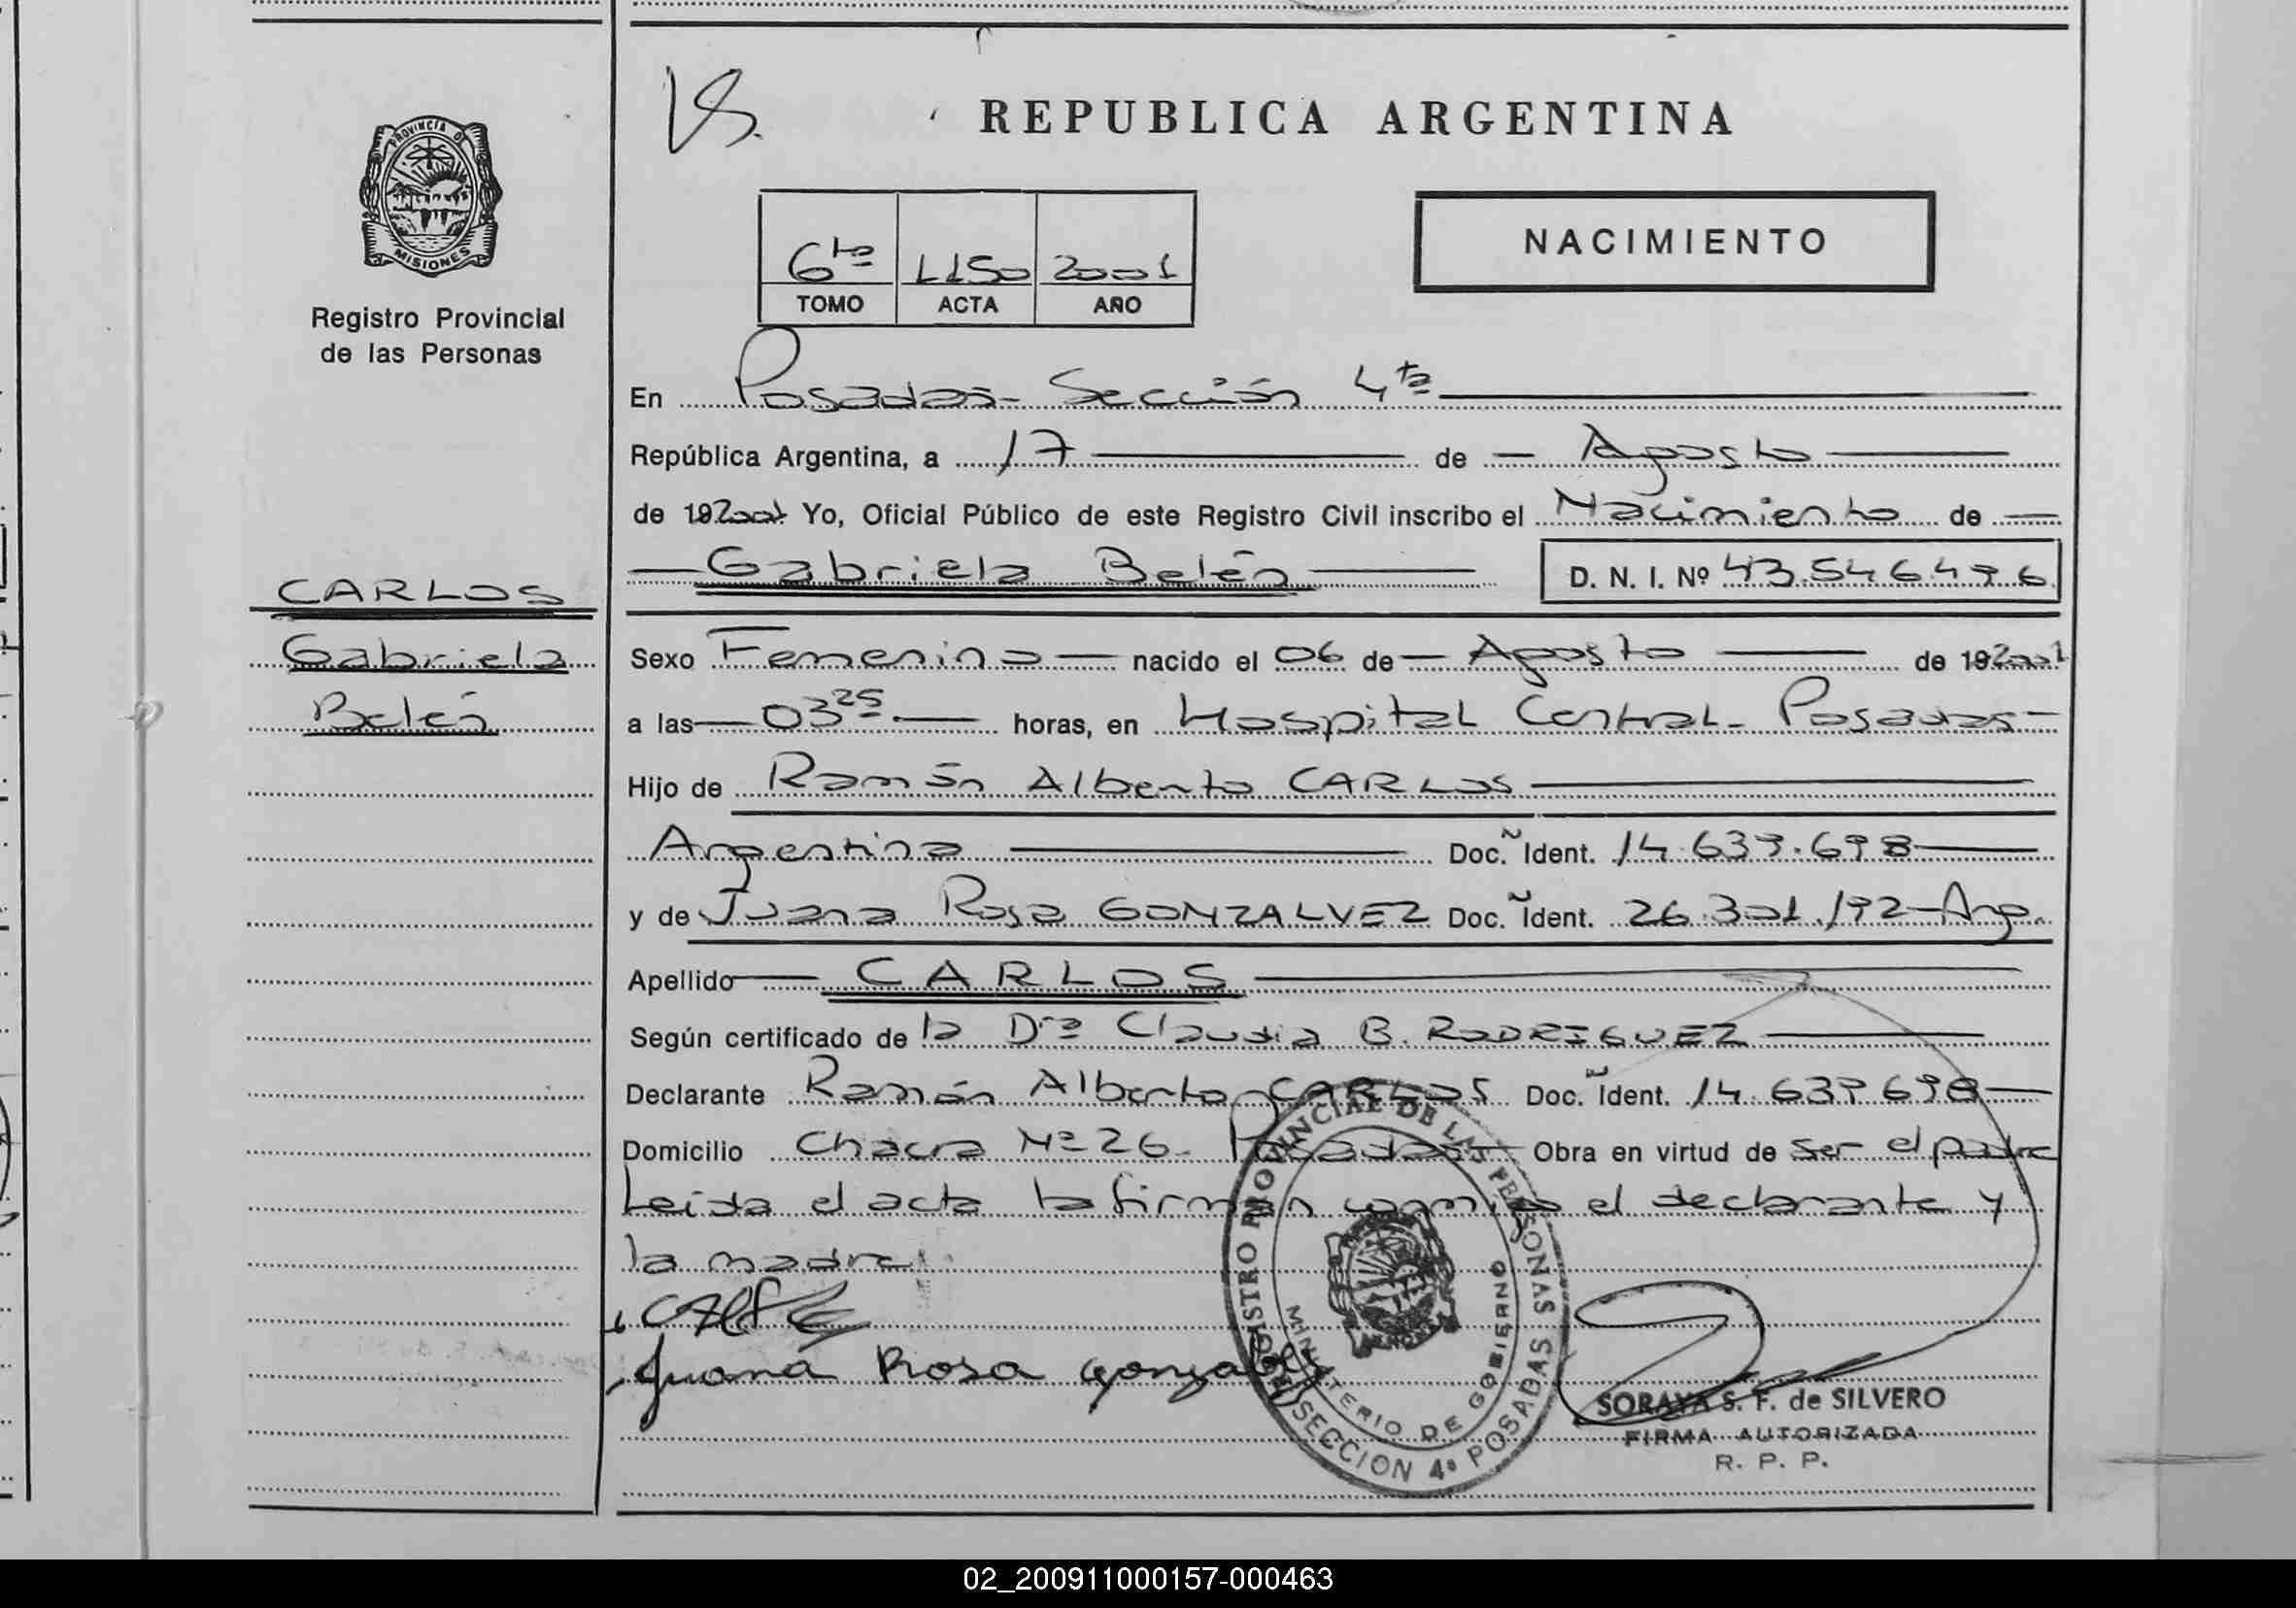 REPUBLICA ARGENTINA
PROVINCIA DE
MISIONES
Registro Provincial
de las Personas
NACIMIENTO
6ta 1150 2001
TOMO ACTA AÑO
En Posadas - Sección 4ta
República Argentina, a 17 de Agosto
de 192001 Yo, Oficial Público de este Registro Civil inscribo el Nacimiento de
Gabriela Belén D. N. I. Nº 43.546.496
CARLOS
Gabriela
Belén
Sexo Femenino nacido el 06 de Agosto de 192001
a las 03 25 horas, en Hospital Central - Posadas -
Hijo de Ramón Alberto CARLOS
Argentina Doc. Ident. 14.639.698
y de Juana Rosa GONZALVEZ Doc. Ident. 26.301.192 - Arg.
Apellido CARLOS
Según certificado de la Dra Claudia B. RODRIGUEZ
Declarante Ramón Alberto CARLOS Doc. Ident. 14.639.698
Domicilio Chacra Nº 26 - Posadas - Obra en virtud de ser el padre
Leída el acta la firman conmigo el declarante y
la madre
Juana Rosa
REGISTRO PROVINCIAL DE LAS PERSONAS
MINISTERIO DE GOBIERNO
SECCION 4ª POSADAS
SORAYA S. F. de SILVERO
FIRMA AUTORIZADA
R. P. P.
02_200911000157-000463